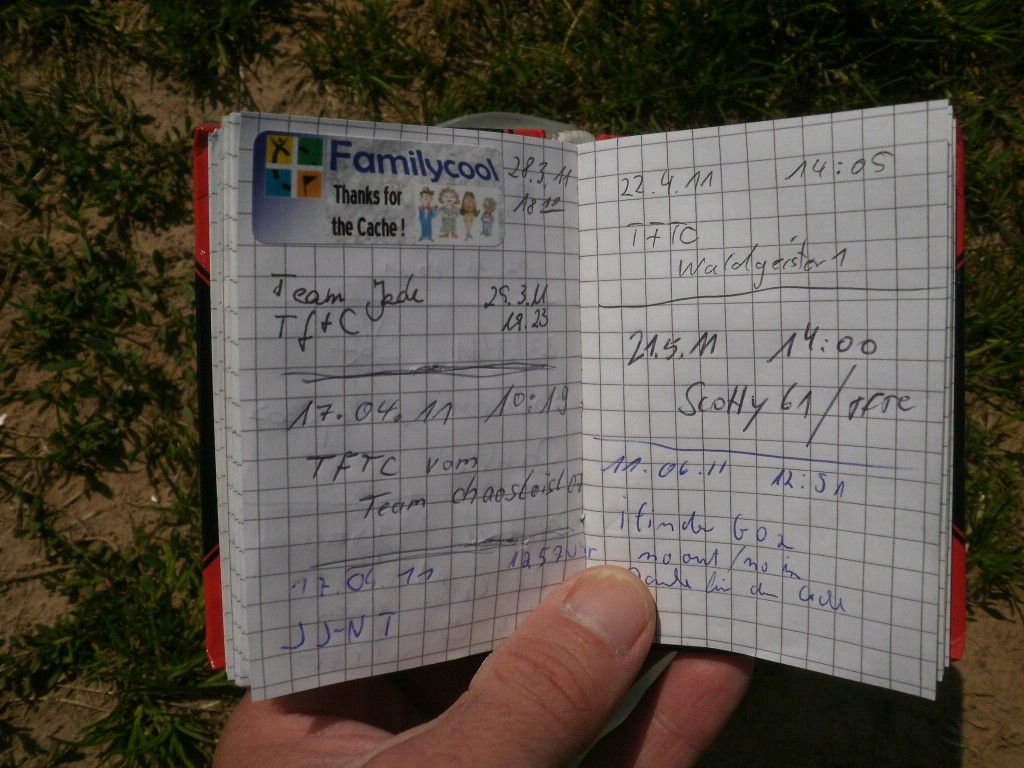 Familycool
Thanks for
the Cache !
28.3.11
18 10
Team Jade 29.3.11
TftC 19.23
17.04.11 10:19
TFTC vom
Team
17.04 11 1257 Uhr
JJ-NT
22.4.11 14:05
TFTC
Waldgeister1
21.5.11 14:00
Scotty 61/TFTC
11.06.11 12:51
ifinder GO2
no out/no in
Danke für den Cache